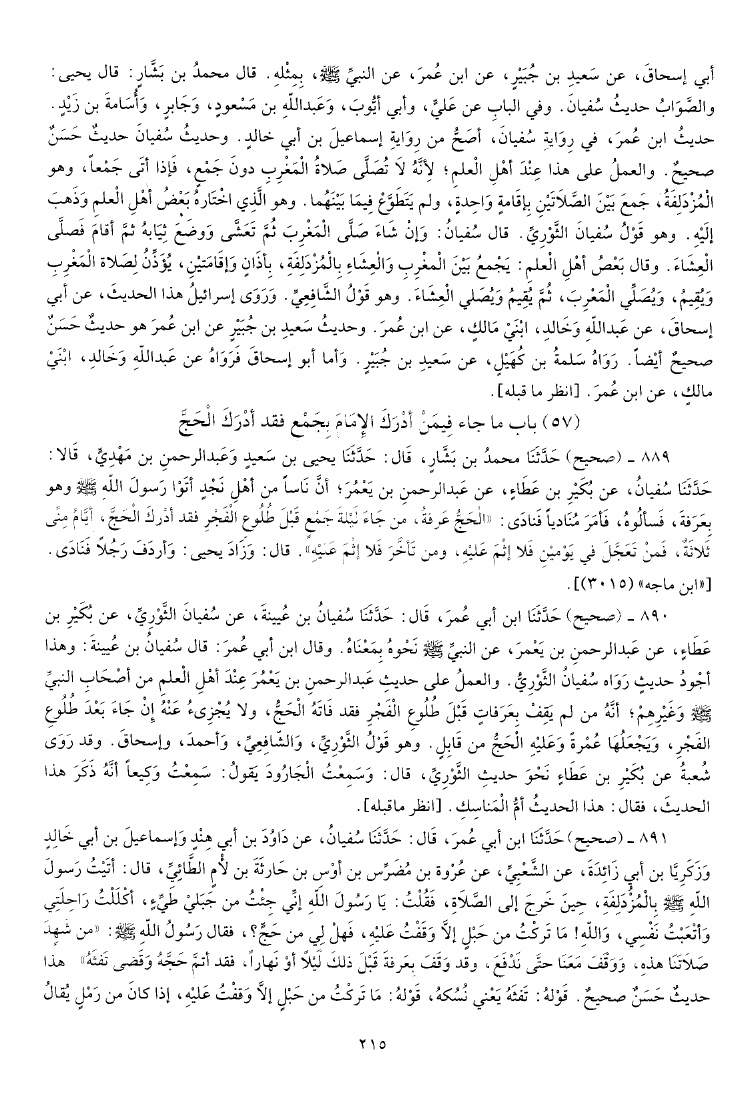 أبي إسحاقَ، عن سَعيدِ بن جُبَيْرٍ، عن ابن عُمرَ، عن النبيِّ ﷺ، بِمِثْلِهِ. قال محمدُ بن بَشَّارٍ: قال يحيى:
والصَّوَابُ حديثُ سُفيانَ. وفي البابِ عن عَليٍّ، وأبي أيُّوبَ، وَعَبداللّهِ بن مَسْعودٍ، وَجَابرٍ، وَأُسَامةَ بن زَيْدٍ.
حديثُ ابن عُمرَ، في رِوَايةِ سُفيانَ، أصَحُّ من رِوَايةِ إسماعيلَ بن أبي خالدٍ. وحديثُ سُفيانَ حديثٌ حَسَنٌ
صحيحٌ. والعملُ على هذا عِنْدَ أهْلِ العلمِ؛ لِأنَّهُ لَا تُصَلَّى صَلاةُ الْمَغْرِبِ دونَ جَمْعٍ، فَإذا أتَى جَمْعاً، وهو
الْمُزْدَلِفَةُ، جَمَعَ بَيْنَ الصَّلَاتَيْنِ بِإقامَةٍ وَاحِدةٍ، ولم يَتَطَوَّعْ فِيمَا بَيْنَهُما. وهو الَّذِي اخْتَارهُ بَعْضُ أهْلِ العلمِ وَذَهَبَ
إلَيْهِ. وهو قَوْلُ سُفيانَ الثَّوْرِيِّ. قال سُفيانُ: وَإنْ شَاءَ صَلَّى الْمَغْرِبَ ثُمَّ تَعَشَّى وَوضَعَ ثِيَابهُ ثمَّ أقامَ فَصلَّى
الْعِشَاءَ. وقال بَعْضُ أهْلِ العلمِ: يَجْمعُ بَيْنَ الْمغْربِ وَالْعِشَاءِ بِالْمُزْدَلِفَةِ، بِأذَانٍ وَإقَامَتَيْنِ، يُؤَذِّنُ لِصَلاة الْمَغْربِ
وَيُقِيمُ، وَيُصَلِّي الْمَغْربَ، ثُمَّ يُقِيمُ وَيُصَلي الْعِشَاءَ. وهو قَوْلُ الشَّافعِيِّ. وَرَوَى إسرائيلُ هذا الحديثَ، عن أبي
إسحاقَ، عن عَبداللّهِ وَخَالدٍ، ابْنَيْ مَالكٍ، عن ابن عُمرَ. وحديثُ سَعيدِ بن جُبَيْرٍ عن ابن عُمرَ هو حديثٌ حَسَنٌ
صحيحٌ أيْضاً. رَوَاهُ سَلمةُ بن كُهَيْلٍ، عن سَعيدِ بن جُبَيْرٍ. وَأما أبو إسحاقَ فَرَوَاهُ عن عَبداللّهِ وَخَالدٍ، ابْنَيْ
مالكٍ، عن ابن عُمرَ. [انظر ما قبله].
(٥٧) باب ما جاء فِيمَنْ أدْرَكَ الإمَامَ بِجَمْعٍ فقد أدْرَكَ الْحَجَّ
٨٨٩ ـ (صحيح) حَدَّثَنَا محمدُ بن بَشَّارٍ، قال: حَدَّثَنَا يحيى بن سَعيدٍ وَعَبدالرحمنِ بن مَهْدِيٍّ، قَالا:
حَدَّثَنَا سُفيانُ، عن بُكَيْرِ بن عَطَاءٍ، عن عَبدالرحمنِ بن يَعْمَرَ؛ أنَّ نَاساً من أهْلِ نَجْدٍ أتَوْا رَسولَ اللّهِ ﷺ وهو
بِعَرَفةَ، فَسألُوهُ، فَأمَرَ مُنَادِياً فَنادَى: «الْحَجُّ عَرفةُ، من جَاءَ لَيْلةَ جَمْعٍ قَبْلَ طُلُوعِ الْفَجْرِ فقد أدْركَ الْحَجَّ، أيَّامُ مِنًى
ثَلَاثةٌ، فَمنْ تَعَجَّلَ في يَوْمَيْنِ فَلا إثْمَ عَليْهِ، ومن تَأخَّرَ فَلا إثْمَ عَليْهِ». قال: وَزَادَ يحيى: وَأردَفَ رَجُلاً فَنَادَى.
[«ابن ماجه» (٣٠١٥)].
٨٩٠ ـ (صحيح) حَدَّثَنَا ابن أبي عُمرَ، قال: حَدَّثَنَا سُفيانُ بن عُيينةَ، عن سُفيانَ الثَّوْرِيِّ، عن بُكَيْرِ بن
عَطَاءٍ، عن عَبدالرحمنِ بن يَعْمَرَ، عن النبيِّ ﷺ نَحْوهُ بِمَعْنَاهُ. وقال ابن أبي عُمرَ: قال سُفيانُ بن عُيينةَ: وهذا
أجْودُ حديثٍ رَوَاه سُفيانُ الثَّوْرِيُّ. والعملُ على حديثِ عَبدالرحمنِ بن يَعْمُرَ عِنْدَ أهْلِ العلمِ من أصْحَابِ النبيِّ
ﷺ وَغَيْرِهِمْ؛ أنَّهُ من لم يَقفْ بِعَرفَاتٍ قَبْلَ طُلُوعِ الْفَجْرِ فقد فَاتَهُ الْحَجُّ، ولا يُجْزِىءُ عَنْهُ إنْ جَاءَ بَعْدَ طُلُوعِ
الفَجْرِ، وَيَجْعَلُهَا عُمْرةً وَعَليْهِ الْحَجُّ من قَابِلٍ. وهو قَوْلُ الثَّوْرِيِّ، وَالشَّافِعِيِّ، وَأحمدَ، وإسحاقَ. وقد رَوَى
شُعبةُ عن بُكَيْرِ بن عَطَاءٍ نَحْوَ حديثِ الثَّوْرِيِّ، قال: وَسَمِعْتُ الْجَارُودَ يَقولُ: سَمِعْتُ وَكِيعاً أنَّهُ ذَكَرَ هذا
الحديثَ، فقال: هذا الحديثُ أمُّ الْمَناسِكِ. [انظر ماقبله].
٨٩١ ـ (صحيح) حَدَّثَنَا ابن أبي عُمرَ، قال: حَدَّثَنَا سُفيانُ، عن دَاوُدَ بن أبي هِنْدٍ وَإسماعيلَ بن أبي خَالِدٍ
وَزَكَرِيَّا بن أبي زَائِدَةَ، عن الشَّعْبِيِّ، عن عُرْوةَ بن مُضَرِّسِ بن أوْسِ بن حَارثَةَ بن لَأمٍ الطَّائِيِّ، قال: أتَيْتُ رَسولَ
اللّهِ ﷺ بِالْمُزْدَلِفَةِ، حِينَ خَرجَ إلى الصَّلَاةِ، فَقُلْتُ: يَا رَسُولَ اللّهِ إنِّي جِئْتُ من جَبَلَيْ طَيِّءٍ، أكْلَلْتُ رَاحِلَتِي
وَأتْعَبْتُ نَفْسِي، وَاللّهِ! مَا تَركْتُ من حَبْلٍ إلاَّ وَقَفْتُ عَليْهِ، فَهلْ لِي من حَجٍّ؟، فقال رَسُولُ اللّهِ ﷺ: «من شَهِدَ
صَلَاتَنَا هذه، وَوَقَفَ مَعَنَا حتَّى نَدْفعَ، وقد وَقفَ بِعَرفةَ قَبْلَ ذلك لَيْلاً أوْ نَهاراً، فقد أتمَّ حَجَّهُ وَقَضى تَفَثَهُ» هذا
حديثٌ حَسَنٌ صحيحٌ. قَوْلهُ: تَفثَهُ يَعْني نُسُكهُ، قَوْلهُ: مَا تَركْتُ من حَبْلٍ إلاَّ وَقفْتُ عَليْهِ، إذا كانَ من رَمْلٍ يُقالُ
٢١٥